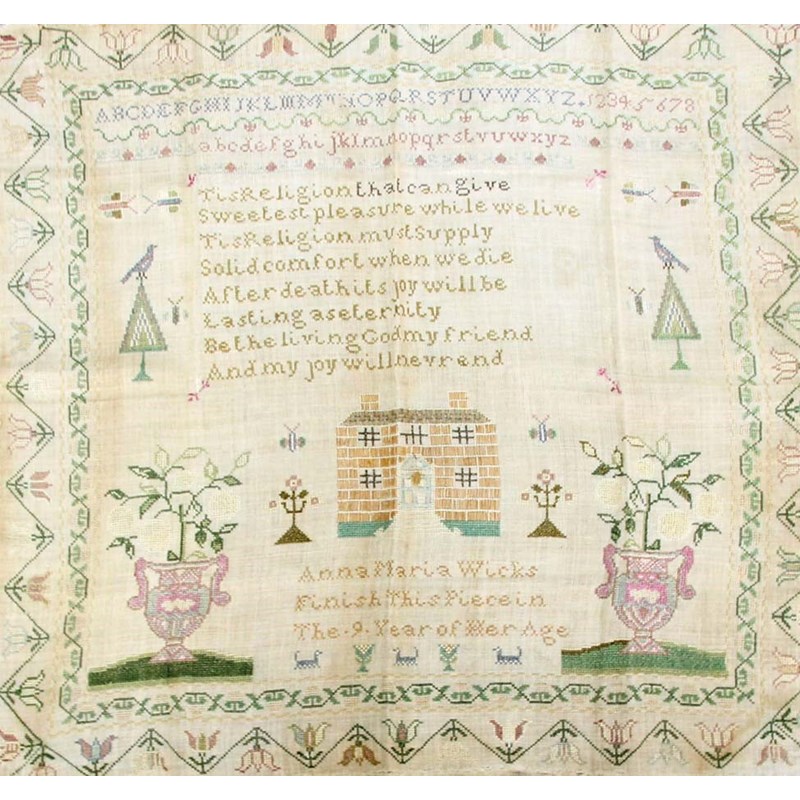 ABCDEFGHIJKLMNOPQRSTUVWXYZ.12345678
abcdefghijklmnopqrstvuwxyz
TisReligion that can give
Sweetest pleasure while we live
TisReligion must Supply
Solid comfort when we die
After death its joy will be
Lasting as eternity
Be the living God my friend
And my joy will nevr end
Anna Maria Wicks
Finish This Piece in
The .9. Year of Her Age